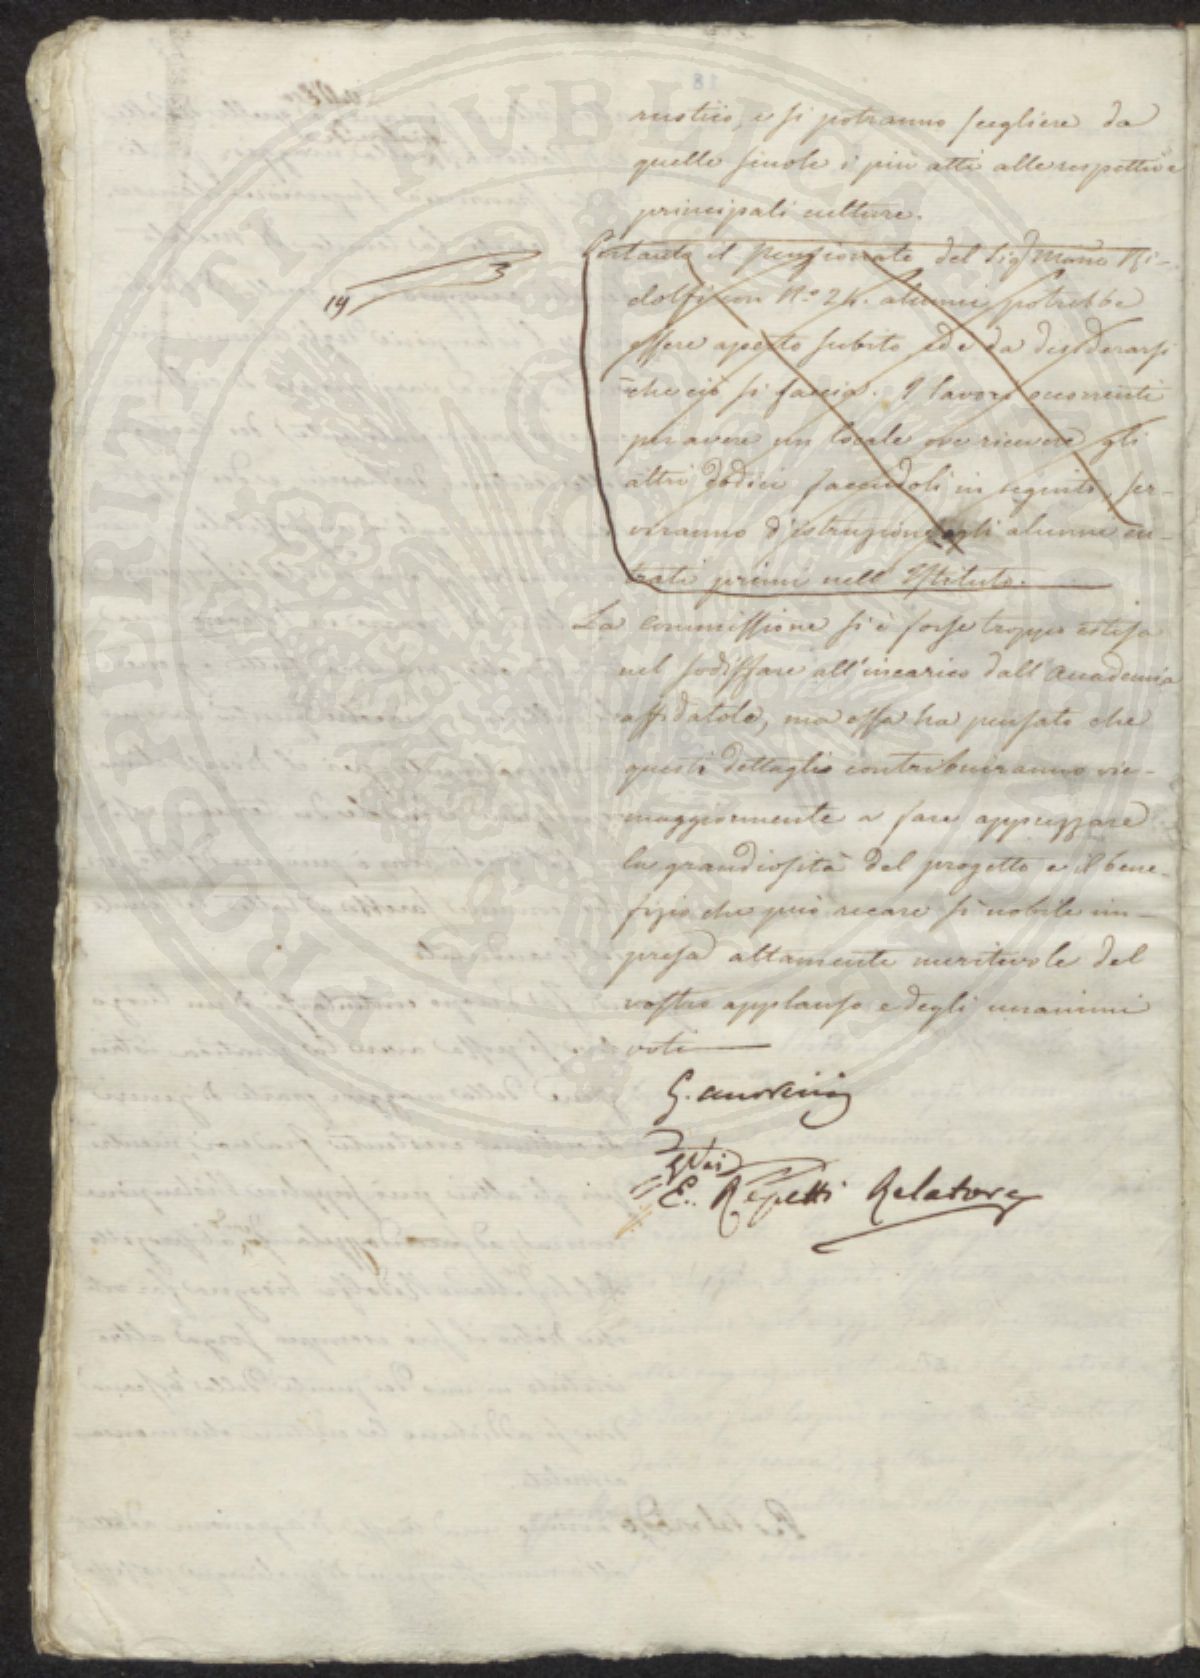 rustico, e si potranno scegliere da
quelle scuole i più atti alle respettive
principali culture.
Pertanto il Pensionato del Sig. March. Ri-
dolfi con N.° 24. alunni potrebbe
essere aperto subito, ed è da desiderarsi
che ciò si faccia. I lavori occorrenti
per avere un locale ove ricevere gli
altri dodici facendoli in seguito, ser-
viranno d'istruzione agli alunni en-
trati primi nell'Istituto.
19
La commissione si è forse troppo estesa
nel sodisfare all'incarico dall'Accademia
affidatole, ma essa ha pensato che
questi dettaglj contribuiranno vie-
maggiormente a fare apprezzare
la grandiosità del progetto e il bene-
fizio che può recare sì nobile im-
presa altamente meritevole del
vostro applauso e degli unanimi
voti
E. Repetti Relatore